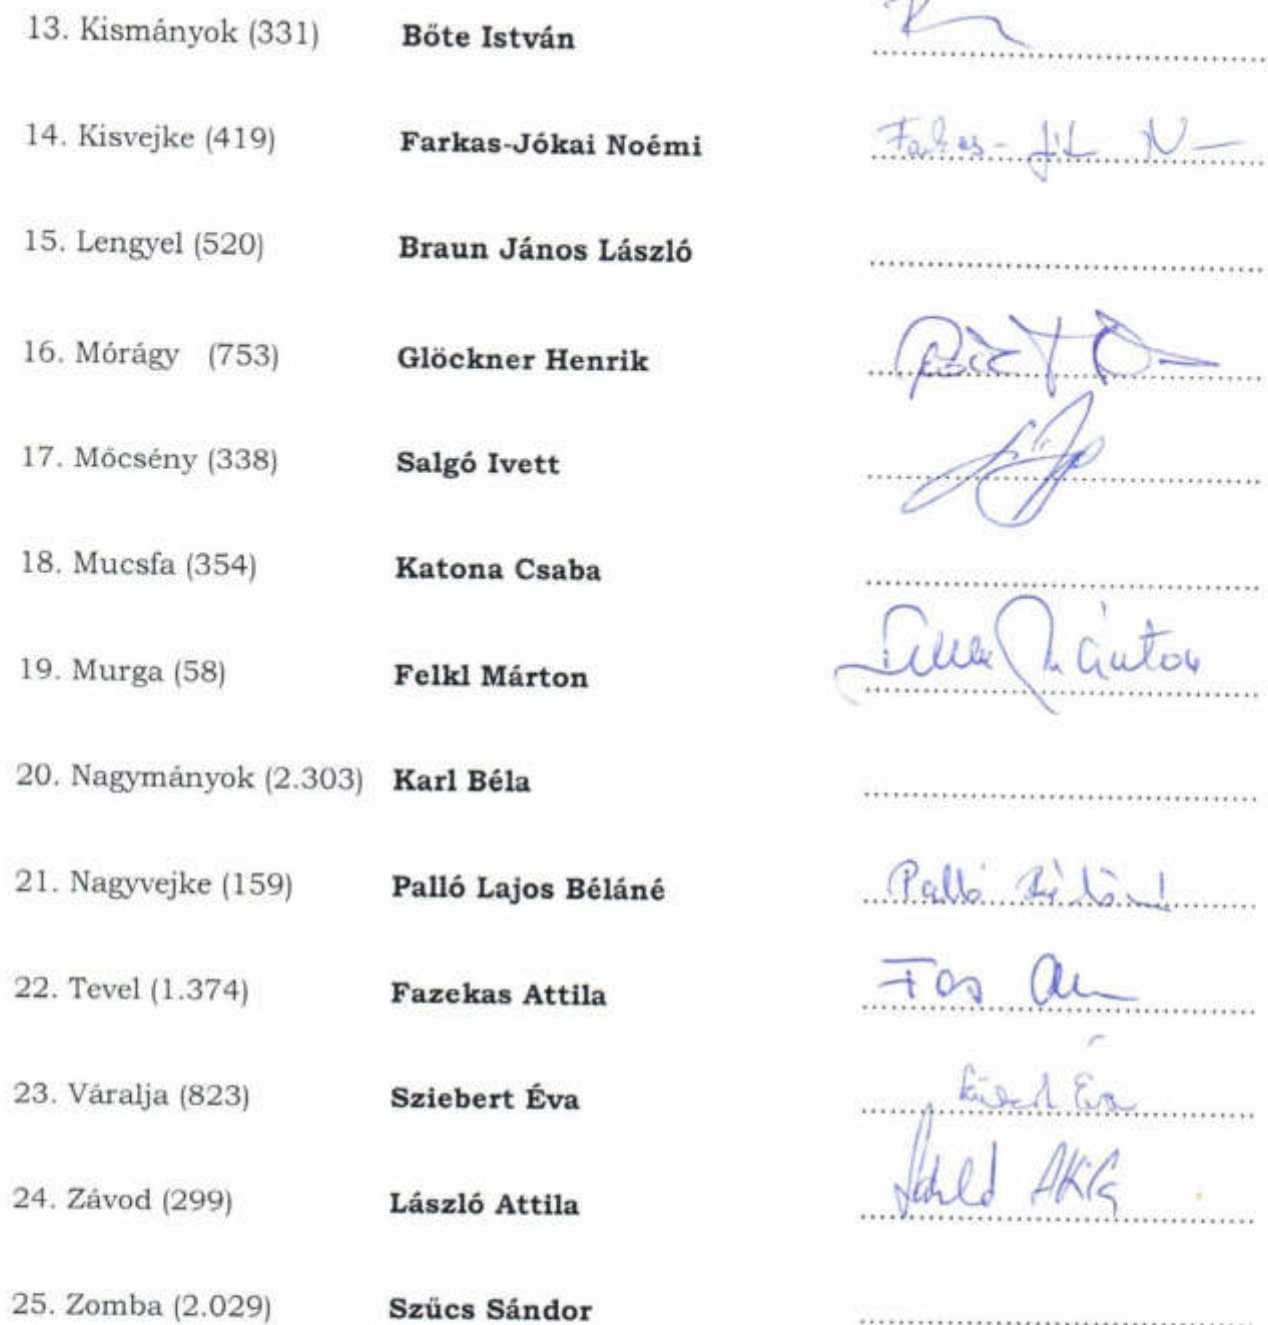 13. Kismányok (331) Bőte István
14. Kisvejke (419) Farkas-Jókai Noémi Farkas-
15. Lengyel (520) Braun János László
16. Mórágy (753) Glöckner Henrik
17. Mőcsény (338) Salgó Ivett
18. Mucsfa (354) Katona Csaba
19. Murga (58) Felkl Márton Márton
20. Nagymányok (2.303) Karl Béla
21. Nagyvejke (159) Palló Lajos Béláné Palló
22. Tevel (1.374) Fazekas Attila
23. Váralja (823) Sziebert Éva Éva
24. Závod (299) László Attila Attila
25. Zomba (2.029) Szűcs Sándor